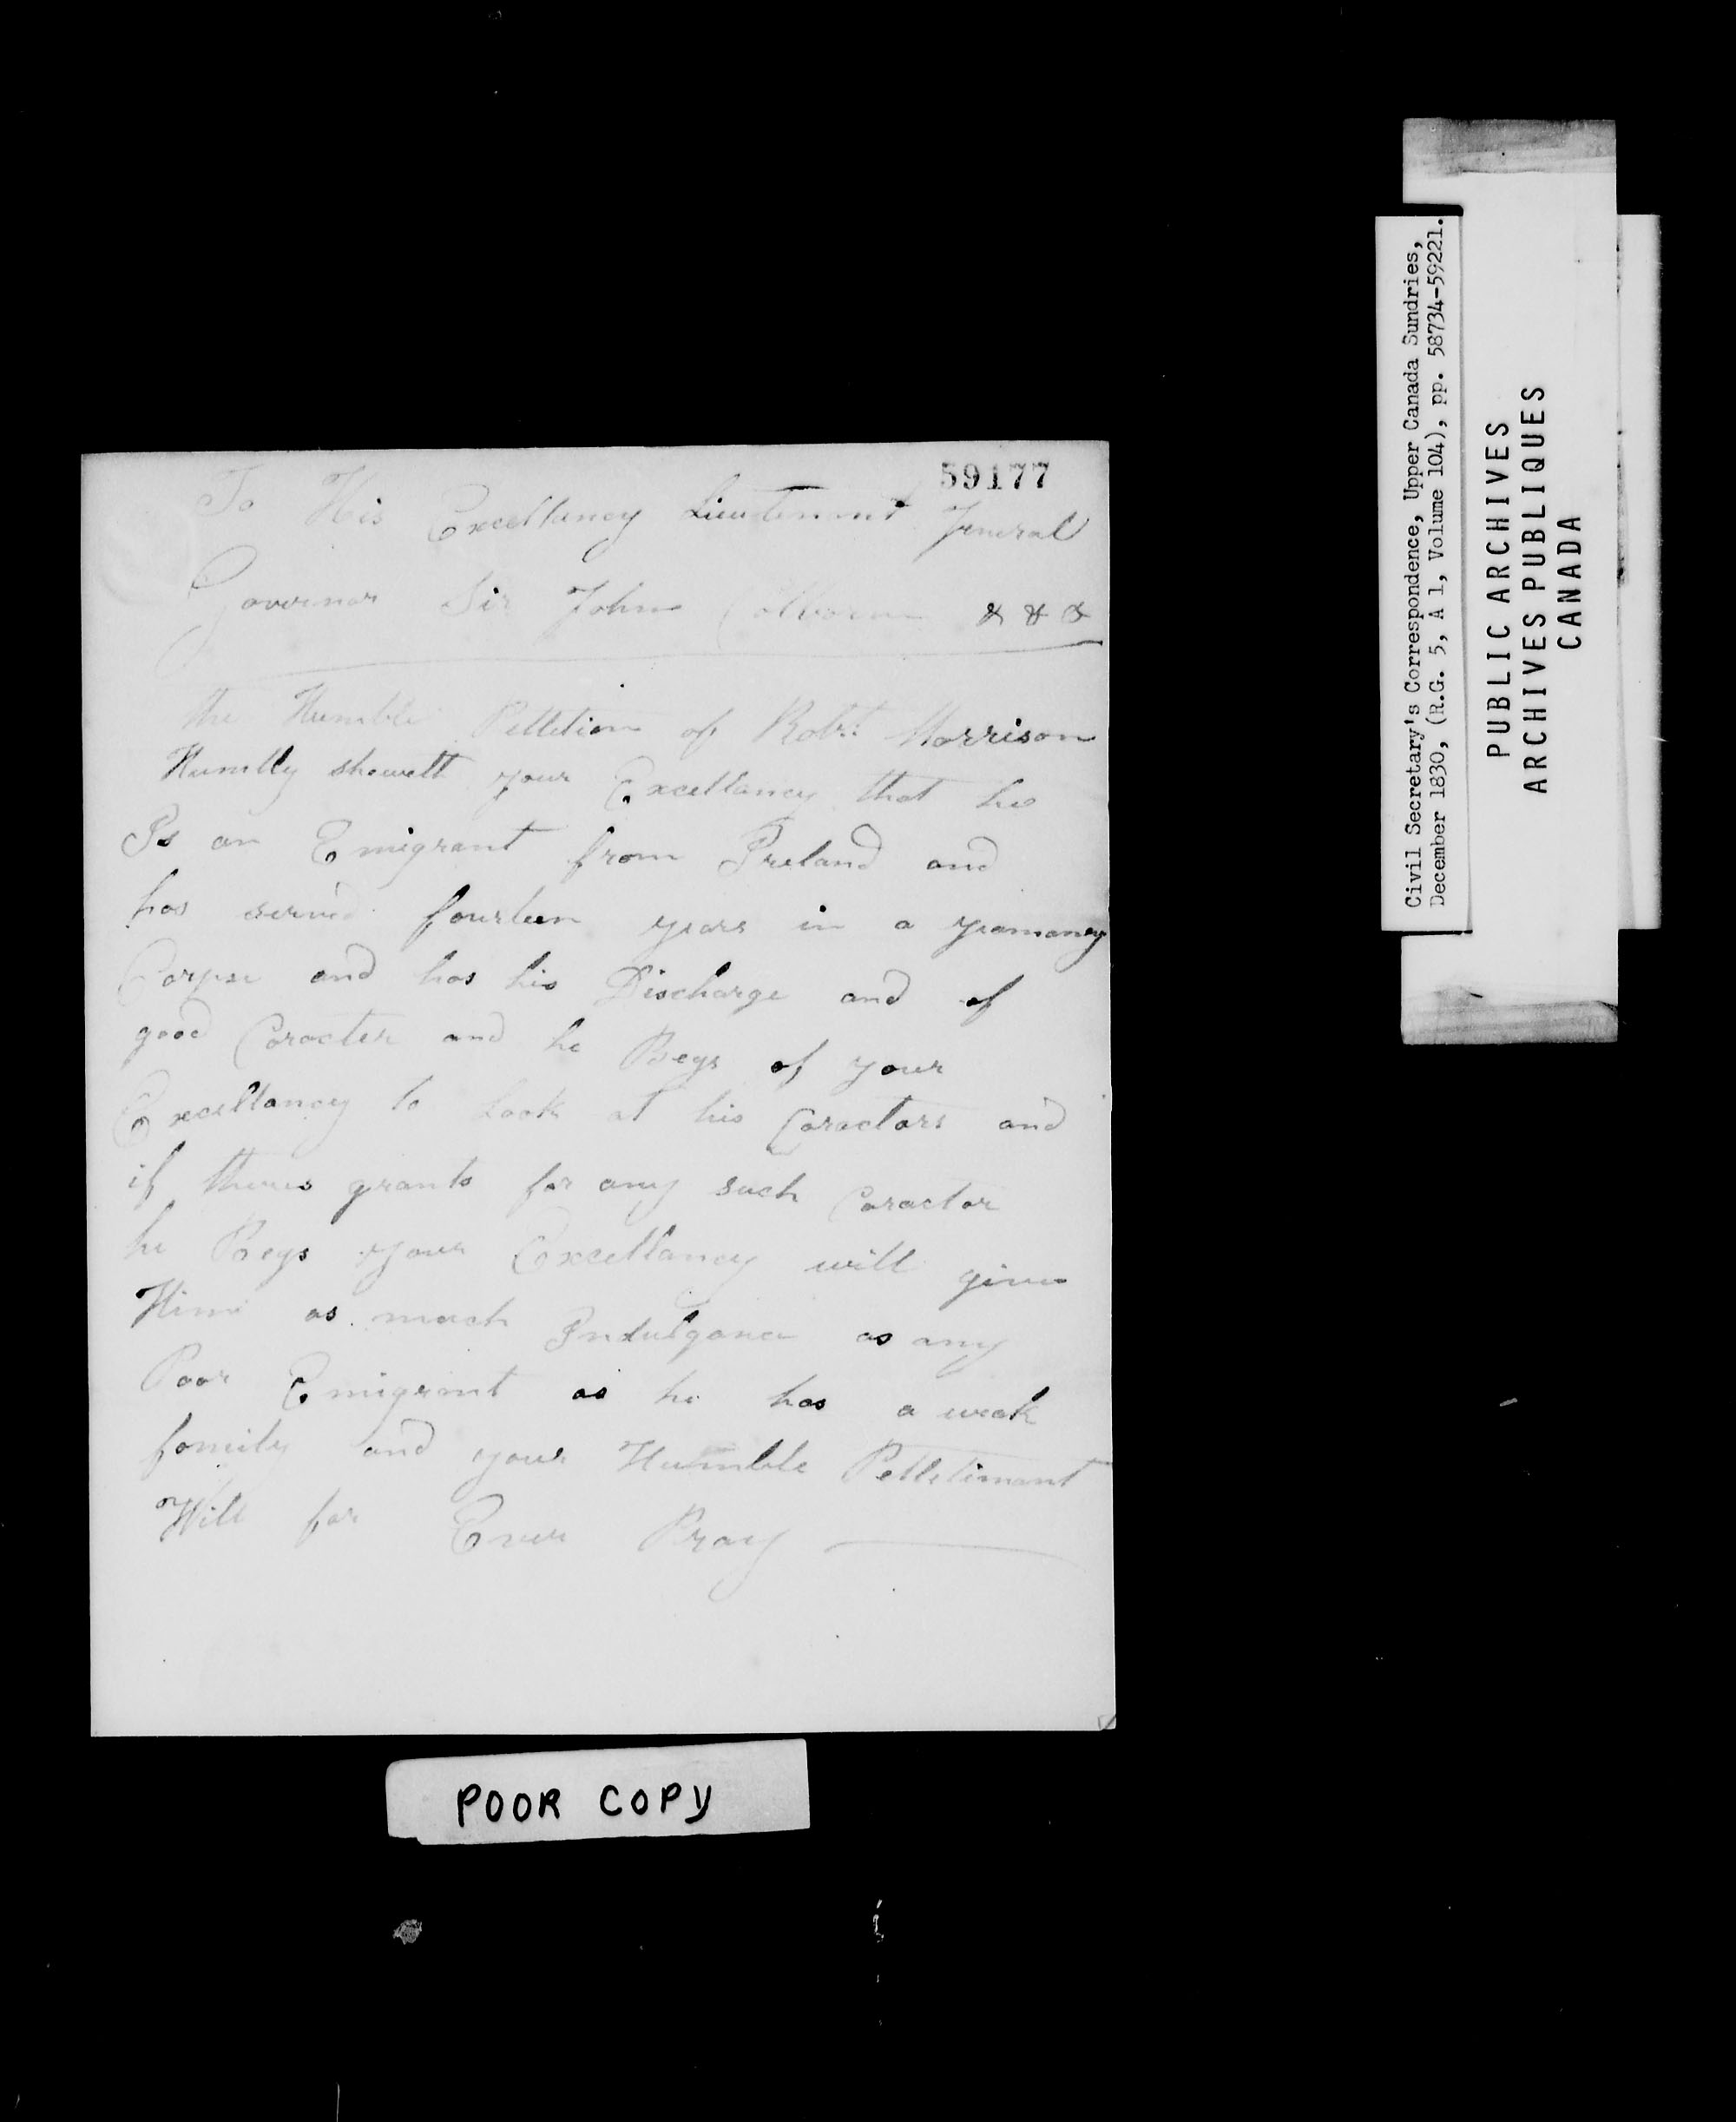 59177
To His Excellancy Lieutenant Jeneral
Governor Sir John Colborn & & &
the Humble Pettetion of Robt. Morrison
Humlly sheweth your Excellancy that he
Is an Emigrant from Ireland and
has served fourteen years in a yeamanry
Corpse and has his Discharge and of
good Coracter and he Begs of your
Excellancy to Look at his Coractors and
if theres grants for any such Coractor
he Begs your Excellancy will give
Him as much Indulgance as any
Poor Emigrant as he has a weak
family and your Humble Pettetinant
Will for Ever Pray
POOR COPY
Civil Secretary's Correspondence, Upper Canada Sundries,
December 1830, (R.G. 5, A 1, Volume 104), pp. 58734-59221.
PUBLIC ARCHIVES
ARCHIVES PUBLIQUES
CANADA